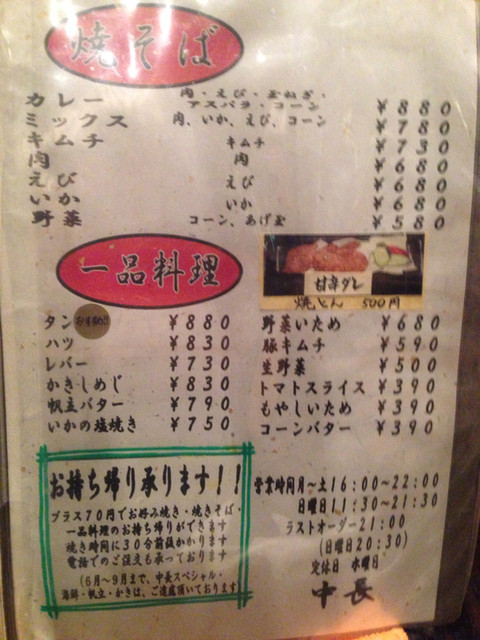 焼そば
カレー 肉・えび・玉ねぎ・アスパラ・コーン ¥880
ミックス 肉、いか、えび、コーン ¥780
キムチ キムチ ¥730
肉 肉 ¥680
えび えび ¥680
いか いか ¥680
野菜 コーン、あげ玉 ¥580
一品料理
甘辛ダレ
焼とん 500円
タン おすすめ!! ¥880
ハツ ¥830
レバー ¥730
かきしめじ ¥830
帆立バター ¥790
いかの塩焼き ¥750
野菜いため ¥680
豚キムチ ¥590
生野菜 ¥500
トマトスライス ¥390
もやしいため ¥390
コーンバター ¥390
お持ち帰り承ります!!
プラス70円でお好み焼き・焼きそば・
一品料理のお持ち帰りができます
焼き時間に30分前後かかります
電話でのご注文も承っております
(6月~9月まで、中長スペシャル・
海鮮・帆立・かきは、ご遠慮頂いております
営業時間月~土16:00~22:00
日曜日11:30~21:30
ラストオーダー21:00
(日曜日20:30)
定休日 水曜日
中長